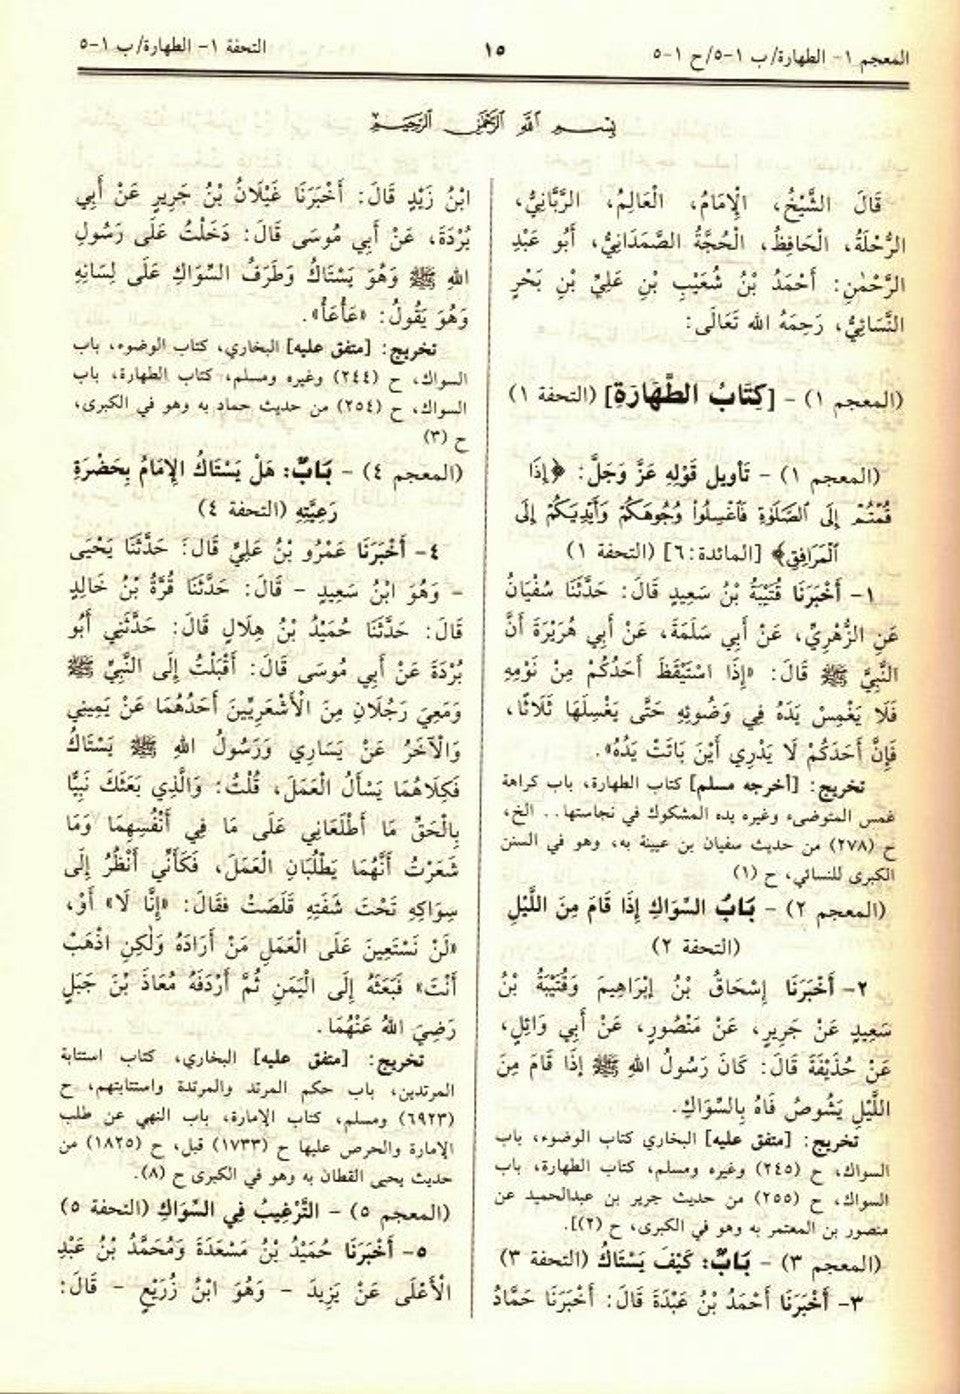 المعجم ١- الطهارة/ ب ١-٥/ ح ١-٥
١٥
التحفة ١- الطهارة/ ب ١-٥
بِسْمِ اللهِ الرَّحْمٰنِ الرَّحِيمِ
قَالَ الشَّيْخُ، الْإِمَامُ، الْعَالِمُ، الرَّبَّانِيُّ،
الرُّحْلَةُ، الْحَافِظُ، الْحُجَّةُ الصَّمَدَانِيُّ، أَبُو عَبْدِ
الرَّحْمٰنِ: أَحْمَدُ بْنُ شُعَيْبِ بْنِ عَلِيِّ بْنِ بَحْرٍ
النَّسَائِيُّ، رَحِمَهُ الله تَعَالَى:
(المعجم ١) - [كِتَابُ الطَّهَارَةِ] (التحفة ١)
(المعجم ١) - تَأْوِيل قَوْلِهِ عَزَّ وَجَلَّ: ﴿إِذَا
قُمْتُمْ إِلَى ٱلصَّلَوٰةِ فَٱغْسِلُوا۟ وُجُوهَكُمْ وَأَيْدِيَكُمْ إِلَى
ٱلْمَرَافِقِ﴾ [المائدة: ٦] (التحفة ١)
١- أَخْبَرَنَا قُتَيْبَةُ بْنُ سَعِيدٍ قَالَ: حَدَّثَنَا سُفْيَانُ
عَنِ الزُّهْرِيِّ، عَنْ أَبِي سَلَمَةَ، عَنْ أَبِي هُرَيْرَةَ أَنَّ
النَّبِيَّ ﷺ قَالَ: «إِذَا اسْتَيْقَظَ أَحَدُكُمْ مِنْ نَوْمِهِ
فَلَا يَغْمِسْ يَدَهُ فِي وَضُوئِهِ حَتَّى يَغْسِلَهَا ثَلَاثًا،
فَإِنَّ أَحَدَكُمْ لَا يَدْرِي أَيْنَ بَاتَتْ يَدُهُ».
تخريج: [أخرجه مسلم] كتاب الطهارة، باب كراهة
غمس المتوضىء وغيره يده المشكوك في نجاستها.. الخ،
ح (٢٧٨) من حديث سفيان بن عيينة به، وهو في السنن
الكبرى للنسائي، ح (١)
(المعجم ٢) - بَابُ السِّوَاكِ إِذَا قَامَ مِنَ اللَّيْلِ
(التحفة ٢)
٢- أَخْبَرَنَا إِسْحَاقُ بْنُ إِبْرَاهِيمَ وَقُتَيْبَةُ بْنُ
سَعِيدٍ عَنْ جَرِيرٍ، عَنْ مَنْصُورٍ، عَنْ أَبِي وَائِلٍ،
عَنْ حُذَيْفَةَ قَالَ: كَانَ رَسُولُ اللهِ ﷺ إِذَا قَامَ مِنَ
اللَّيْلِ يَشُوصُ فَاهُ بِالسِّوَاكِ.
تخريج: [متفق عليه] البخاري كتاب الوضوء، باب
السواك، ح (٢٤٥) وغيره ومسلم، كتاب الطهارة، باب
السواك، ح (٢٥٥) من حديث جرير بن عبدالحميد عن
منصور بن المعتمر به وهو في الكبرى، ح (٢)].
(المعجم ٣) - بَابٌ: كَيْفَ يَسْتَاكُ (التحفة ٣)
٣- أَخْبَرَنَا أَحْمَدُ بْنُ عَبْدَةَ قَالَ: أَخْبَرَنَا حَمَّادُ
ابْنُ زَيْدٍ قَالَ: أَخْبَرَنَا غَيْلَانُ بْنُ جَرِيرٍ عَنْ أَبِي
بُرْدَةَ، عَنْ أَبِي مُوسَى قَالَ: دَخَلْتُ عَلَى رَسُولِ
اللهِ ﷺ وَهُوَ يَسْتَاكُ وَطَرَفُ السِّوَاكِ عَلَى لِسَانِهِ
وَهُوَ يَقُولُ: «عَأْعَأْ».
تخريج: [متفق عليه] البخاري، كتاب الوضوء، باب
السواك، ح (٢٤٤) وغيره ومسلم، كتاب الطهارة، باب
السواك، ح (٢٥٤) من حديث حماد به وهو في الكبرى،
ح (٣)
(المعجم ٤) - بَابٌ: هَلْ يَسْتَاكُ الإِمَامُ بِحَضْرَةِ
رَعِيَّتِهِ (التحفة ٤)
٤- أَخْبَرَنَا عَمْرُو بْنُ عَلِيٍّ قَالَ: حَدَّثَنَا يَحْيَى
- وَهُوَ ابْنُ سَعِيدٍ - قَالَ: حَدَّثَنَا قُرَّةُ بْنُ خَالِدٍ
قَالَ: حَدَّثَنَا حُمَيْدُ بْنُ هِلَالٍ قَالَ: حَدَّثَنِي أَبُو
بُرْدَةَ عَنْ أَبِي مُوسَى قَالَ: أَقْبَلْتُ إِلَى النَّبِيِّ ﷺ
وَمَعِيَ رَجُلَانِ مِنَ الْأَشْعَرِيِّينَ أَحَدُهُمَا عَنْ يَمِينِي
وَالْآخَرُ عَنْ يَسَارِي وَرَسُولُ اللهِ ﷺ يَسْتَاكُ
فَكِلَاهُمَا يَسْأَلُ الْعَمَلَ، قُلْتُ: وَالَّذِي بَعَثَكَ نَبِيًّا
بِالْحَقِّ مَا أَطْلَعَانِي عَلَى مَا فِي أَنْفُسِهِمَا وَمَا
شَعَرْتُ أَنَّهُمَا يَطْلُبَانِ الْعَمَلَ، فَكَأَنِّي أَنْظُرُ إِلَى
سِوَاكِهِ تَحْتَ شَفَتِهِ قَلَصَتْ فَقَالَ: «إِنَّا لَا» أَوْ،
«لَنْ نَسْتَعِينَ عَلَى الْعَمَلِ مَنْ أَرَادَهُ وَلَكِنِ اذْهَبْ
أَنْتَ» فَبَعَثَهُ إِلَى الْيَمَنِ ثُمَّ أَرْدَفَهُ مُعَاذَ بْنَ جَبَلٍ
رَضِيَ اللهُ عَنْهُمَا.
تخريج: [متفق عليه] البخاري، كتاب استتابة
المرتدين، باب حكم المرتد والمرتدة واستتابتهم، ح
(٦٩٢٣) ومسلم، كتاب الإمارة، باب النهي عن طلب
الإمارة والحرص عليها ح (١٧٣٣) قبل، ح (١٨٢٥) من
حديث يحيى القطان به وهو في الكبرى ح (٨).
(المعجم ٥) - التَّرْغِيبُ فِي السِّوَاكِ (التحفة ٥)
٥- أَخْبَرَنَا حُمَيْدُ بْنُ مَسْعَدَةَ وَمُحَمَّدُ بْنُ عَبْدِ
الْأَعْلَى عَنْ يَزِيدَ - وَهُوَ ابْنُ زُرَيْعٍ - قَالَ: